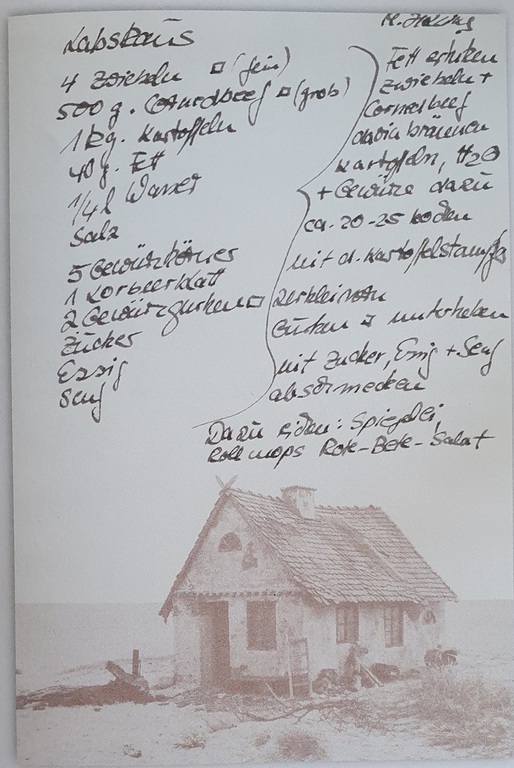 Labskaus
4 Zwiebeln □ (fein)
500 g. Cornedbeef □ (grob)
1 kg. Kartoffeln
40 g. Fett
1/4 l Wasser
Salz
5 Gewürzkörner
1 Lorbeerblatt
2 Gewürzgurken □
Zucker
Essig
Senf
Fett erhitzen
Zwiebeln +
Cornedbeef
darin bräunen
Kartoffeln, H2O
+ Gewürze dazu
ca. 20-25 kochen
mit d. Kartoffelstampfer
zerkleinern
Gurken □ unterheben
mit Zucker, Essig + Senf
abschmecken
Dazu reichen: Spiegelei,
Rollmops Rote-Bete-Salat